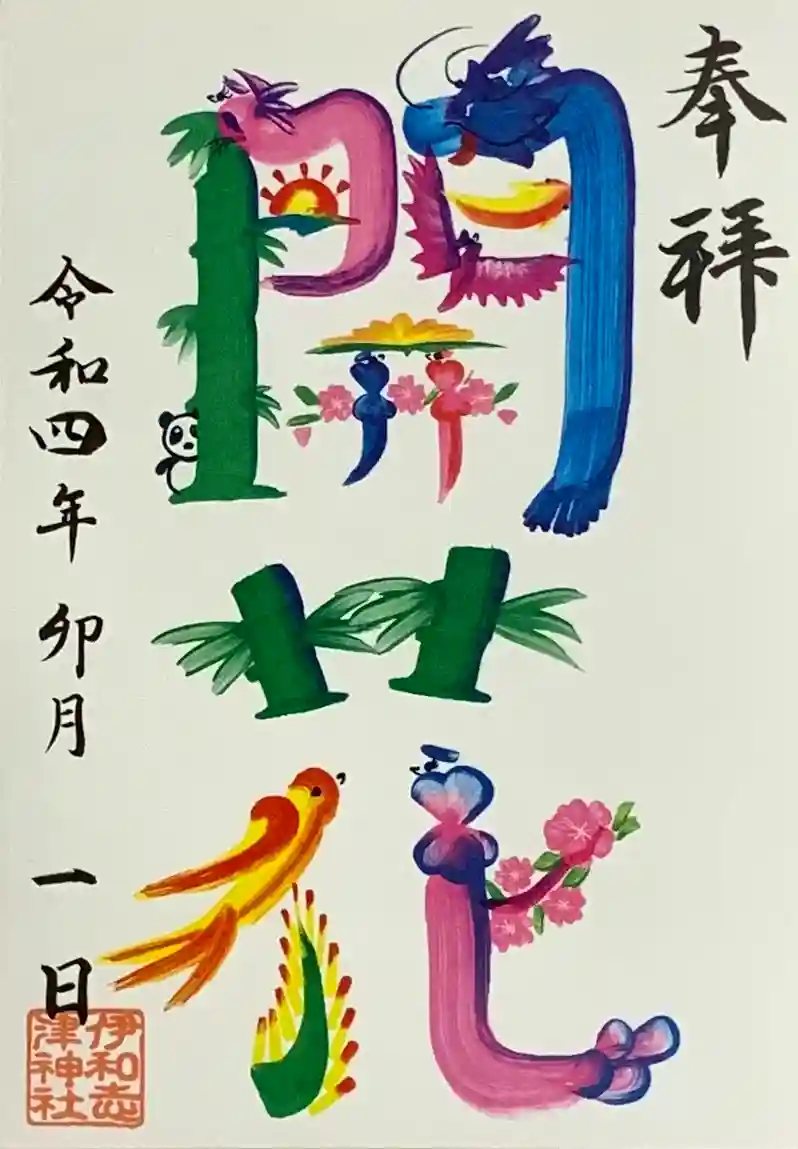 奉拝
開花
令和四年 卯月 一日
伊和志
津神社